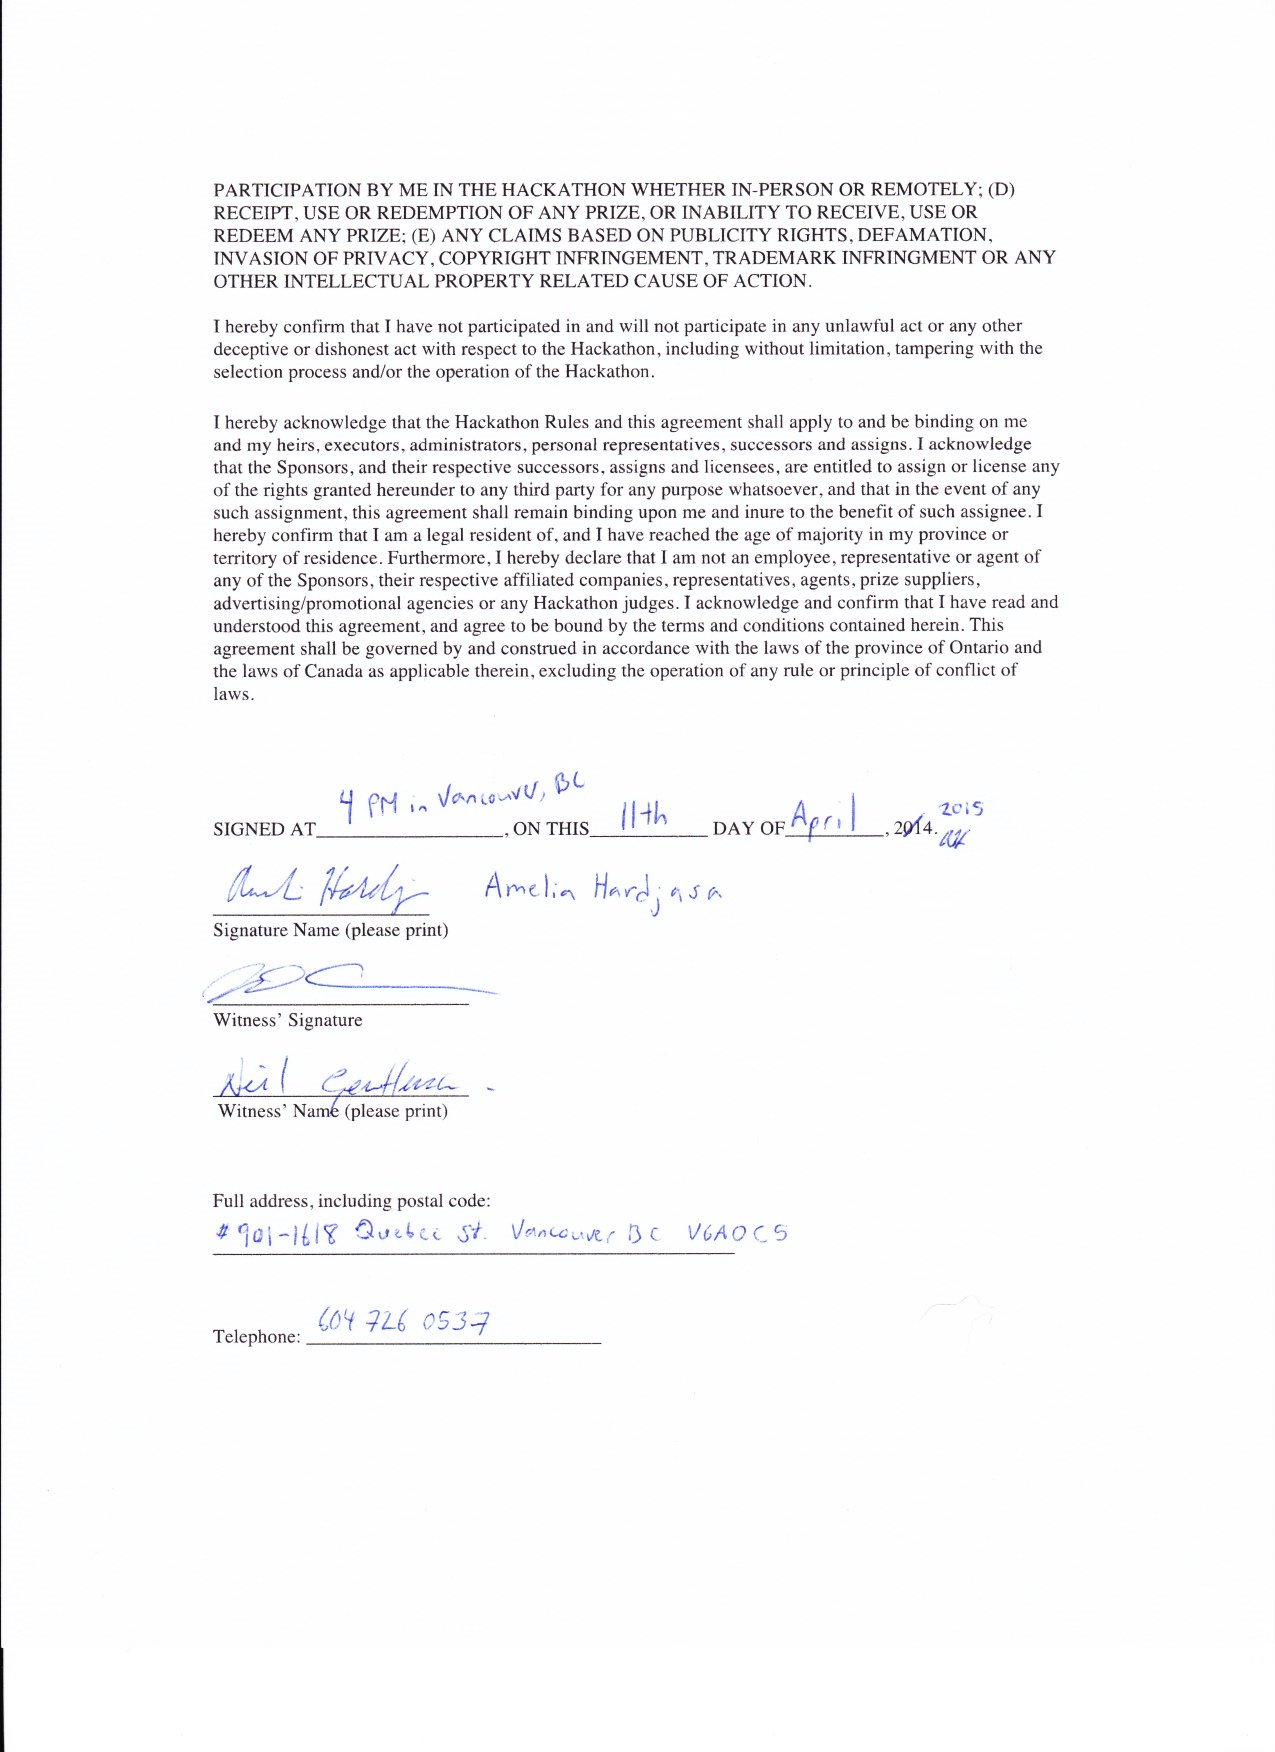 PARTICIPATION BY ME IN THE HACKATHON WHETHER IN-PERSON OR REMOTELY; (D)
RECEIPT, USE OR REDEMPTION OF ANY PRIZE, OR INABILITY TO RECEIVE, USE OR
REDEEM ANY PRIZE; (E) ANY CLAIMS BASED ON PUBLICITY RIGHTS, DEFAMATION,
INVASION OF PRIVACY, COPYRIGHT INFRINGEMENT, TRADEMARK INFRINGMENT OR ANY
OTHER INTELLECTUAL PROPERTY RELATED CAUSE OF ACTION.
I hereby confirm that I have not participated in and will not participate in any unlawful act or any other
deceptive or dishonest act with respect to the Hackathon, including without limitation, tampering with the
selection process and/or the operation of the Hackathon.
I hereby acknowledge that the Hackathon Rules and this agreement shall apply to and be binding on me
and my heirs, executors, administrators, personal representatives, successors and assigns. I acknowledge
that the Sponsors, and their respective successors, assigns and licensees, are entitled to assign or license any
of the rights granted hereunder to any third party for any purpose whatsoever, and that in the event of any
such assignment, this agreement shall remain binding upon me and inure to the benefit of such assignee. I
hereby confirm that I am a legal resident of, and I have reached the age of majority in my province or
territory of residence. Furthermore, I hereby declare that I am not an employee, representative or agent of
any of the Sponsors, their respective affiliated companies, representatives, agents, prize suppliers,
advertising/promotional agencies or any Hackathon judges. I acknowledge and confirm that I have read and
understood this agreement, and agree to be bound by the terms and conditions contained herein. This
agreement shall be governed by and construed in accordance with the laws of the province of Ontario and
the laws of Canada as applicable therein, excluding the operation of any rule or principle of conflict of
laws.
SIGNED AT 4 PM in Vancouver, BC, ON THIS 11th DAY OF April, 2014. 2015
Amelia Hardjasa
Signature Name (please print)
Witness' Signature
Neil
Witness' Name (please print)
Full address, including postal code:
#901-1618 Quebec St. Vancouver BC V6A0C5
Telephone: 604 726 0537